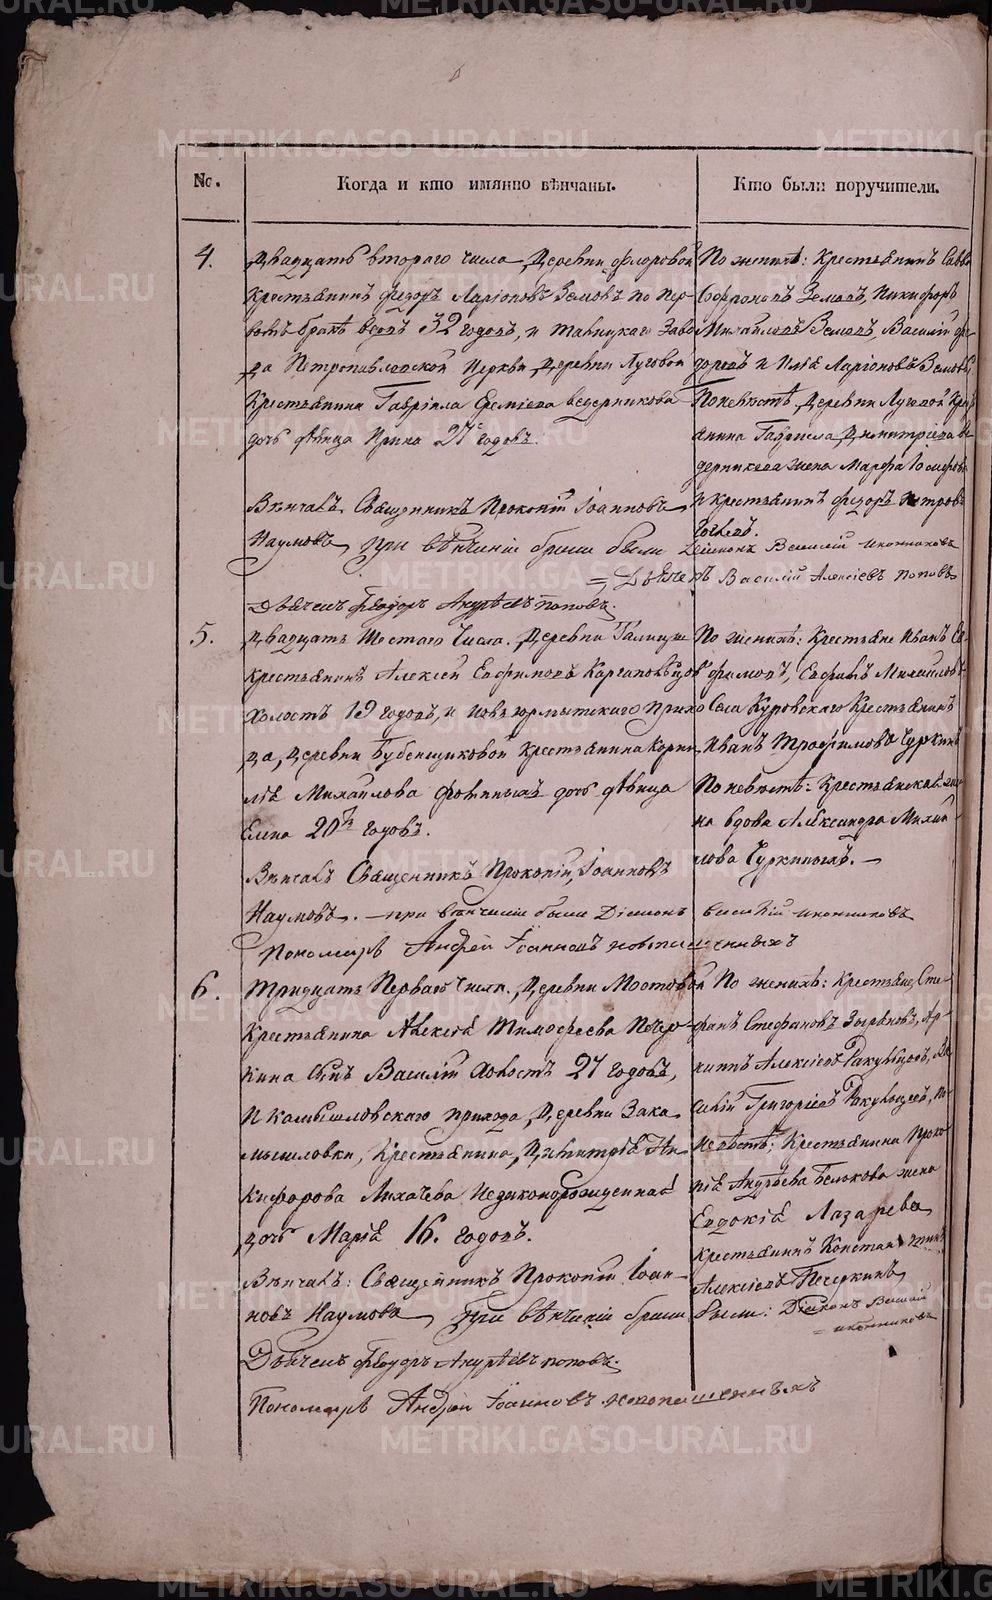 No.
Когда и кто имянно вѣнчаны.
Кто были поручители.
4.
Двадцать втораго числа, Деревни Флоровой
Крестьянинъ Федоръ Ларіоновъ Земовъ по пер-
вомъ бракѣ 32 годовъ, и Тавицкаго Заво
да Петропавловской Церкви, Деревни Луговой
Крестьянина Гавріила Ведерникова
дочь дѣвица Ирина 27 годовъ.
Вѣнчалъ Священникъ Прокопій Іоанновъ
Наумовъ, при вѣнчаніи были
Дьячекъ Ѳеодоръ Андрѣевъ Поповъ.
По женихѣ: Крестьянинъ Савва
Софроновъ Земовъ, Никифоръ
Михайловъ Земовъ, Василій Фе-
доровъ и Илья Ларіоновъ Земовы
По невѣстѣ, Деревни Луговой Крес
янина Гавриила Димитріева Ве
дерникова жена Марфа Іосифова
и Крестьянинъ Федоръ Петровъ
Діаконъ Василій Иконниковъ
= Дьячекъ Василій Алексіевъ Поповъ
5.
Двадцать Шестаго Числа. Деревни Галицы
Крестьянинъ Алексей Евфимовъ
Холостъ 19 годовъ, и Новъюрмытскаго Прихо
да, Деревни Бубенщиковой Крестьянина Корни
лія Михайлова дочь дѣвица
Елена 20ти годовъ.
Вѣнчалъ Священникъ Прокопій, Іоанновъ
Наумовъ. – при вѣнчаніи были Діаконъ Василій Иконниковъ
Пономарь Андрей Іоанновъ Новопашенныхъ
По женихѣ: Крестьяне Иванъ Ев
фимовъ, Евфимъ Михайловъ
Села Куровскаго Крестьянинъ
Иванъ Трофимовъ Чуркинъ
По невѣстѣ: Крестьянская же
на вдова Александра Михай
лова Чуркиныхъ. –
6.
Тридцать Перваго Числа, Деревни Мостовой
Крестьянина Алексія Тимофеева Печер-
кина Сынъ Василій Холостъ 27 годовъ,
И Камышловскаго прихода, Деревни Зака
мышловки, Крестьянина, Димитрія Ни
кифорова Лихачева Незаконорожденная
дочь Марія 16. годовъ.
Вѣнчалъ: Священникъ Прокопій Іоан-
новъ Наумовъ, при вѣнчаніи были
Дьячекъ Ѳеодоръ Андрѣевъ Поповъ.
Пономарь Андрей Іоанновъ Новопашенныхъ
По женихѣ: Крестьяне, Сте-
фанъ Стефановъ Зыряновъ, Ар-
хиппъ Алексіевъ Ракульцовъ, Ва
силій Григоріевъ Ракульцовъ, По
невѣстѣ; Крестьянина Проко-
пія Андрѣева жена
Евдокія Лазарева
Крестьянинъ Константинъ
Алексіевъ Печеркинъ
были: Діаконъ Василій
= Иконниковъ
METRIKI.GASO-URAL.RU